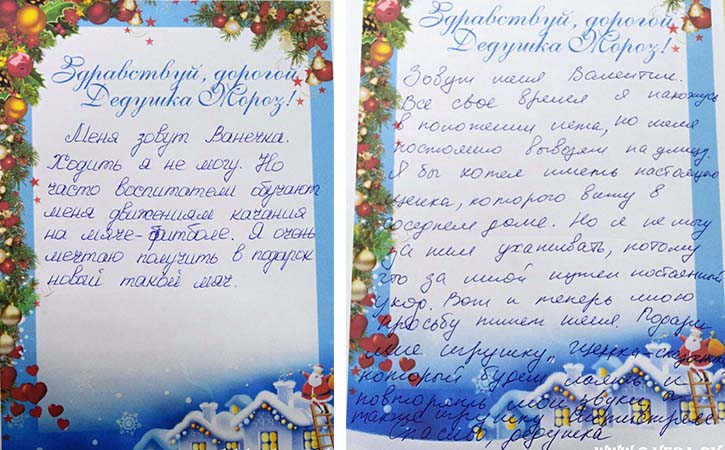 Здравствуй, дорогой
Дедушка Мороз!
Меня зовут Ванечка.
Ходить я не могу. Но
часто воспитатели обучают
меня движениям качания
на мяче-фитболе. Я очень
мечтаю получить в подарок
новый такой мяч.
Здравствуй, дорогой
Дедушка Мороз!
Зовут меня Валентин.
Всё своё время я нахожусь
в положении лежа, но меня
постоянно вывозят на улицу.
Я бы хотел иметь настоящего
щенка, которого вижу в
соседнем доме. Но я не могу
за ним ухаживать, потому
что за мной нужен постоянный
уход. Вот и теперь мою
просьбу пишет няня. Подари
мне игрушку, щенка-
который будет лаять и
повторять мои звуки а
также игрушку
Спасибо, дедушка